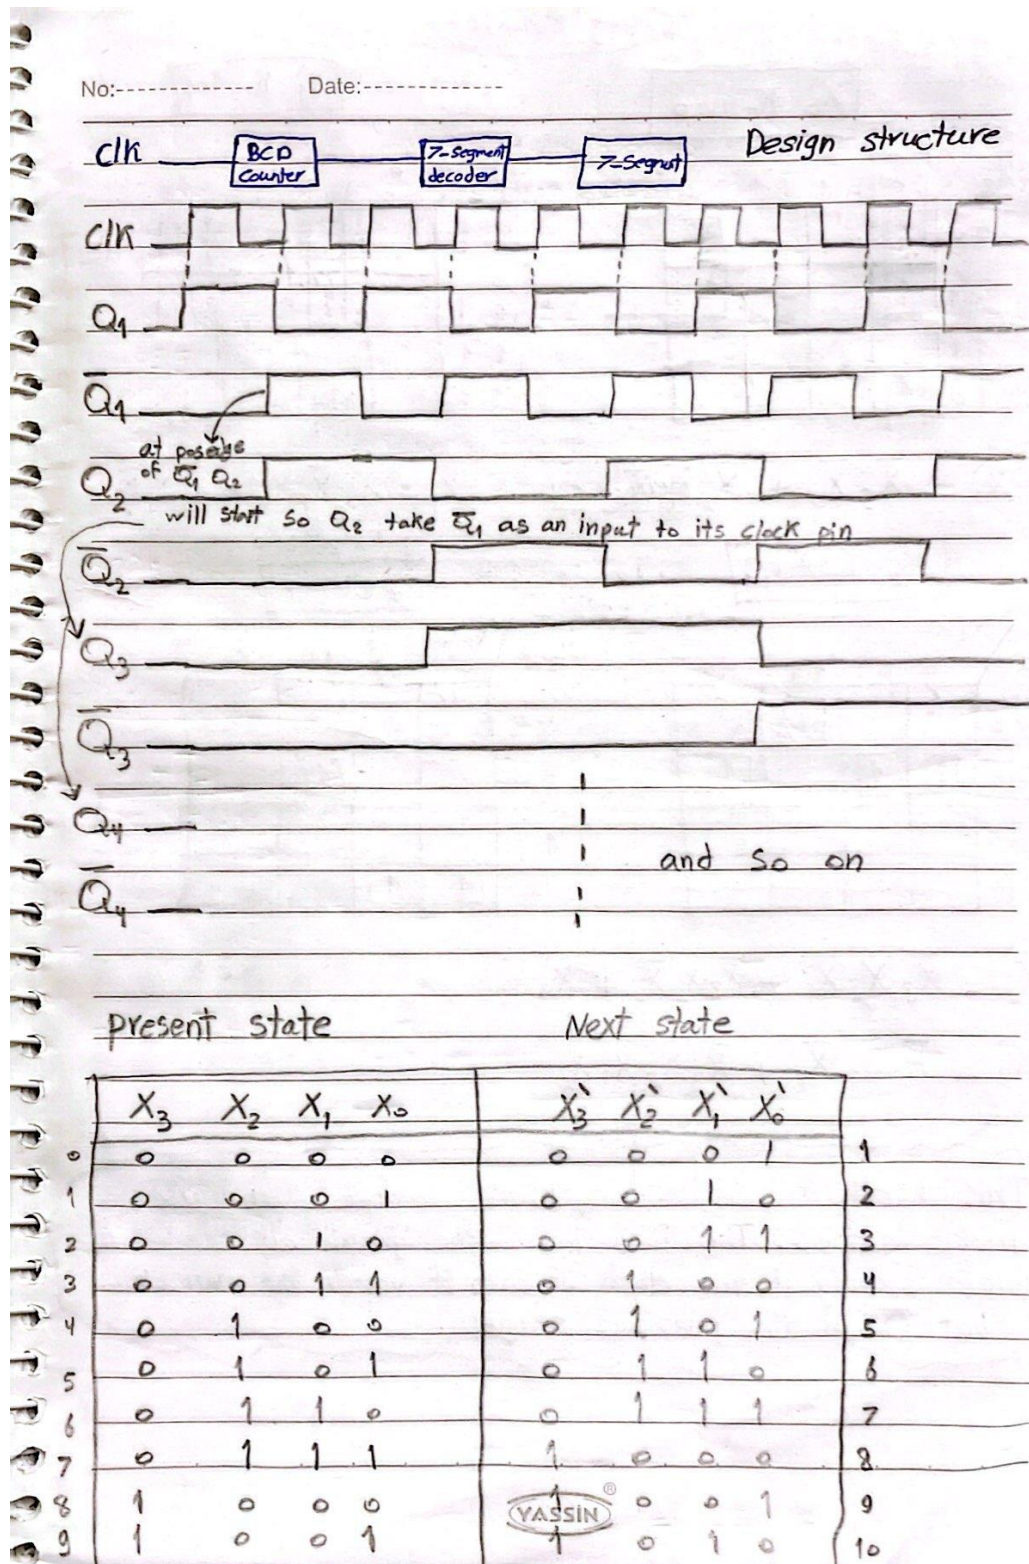 No:-------------- Date:--------------
Design structure
clk BCD counter 7-segment decoder 7-segmut
clk
Q1
Q̅1
at posedge
of Q̅1 Q2
Q2
will start so Q2 take Q̅1 as an input to its clock pin
Q̅2
Q3
Q̅3
Q4
and so on
Q̅4
present state Next state
X3 X2 X1 X0 X3` X2` X1` X0`
0 0 0 0 0 0 0 0 1 1
1 0 0 0 1 0 0 1 0 2
2 0 0 1 0 0 0 1 1 3
3 0 0 1 1 0 1 0 0 4
4 0 1 0 0 0 1 0 1 5
5 0 1 0 1 0 1 1 0 6
6 0 1 1 0 0 1 1 1 7
7 0 1 1 1 1 0 0 0 8
8 1 0 0 0 1 0 0 1 9
YASSIN®
9 1 0 0 1 1 0 1 0 10